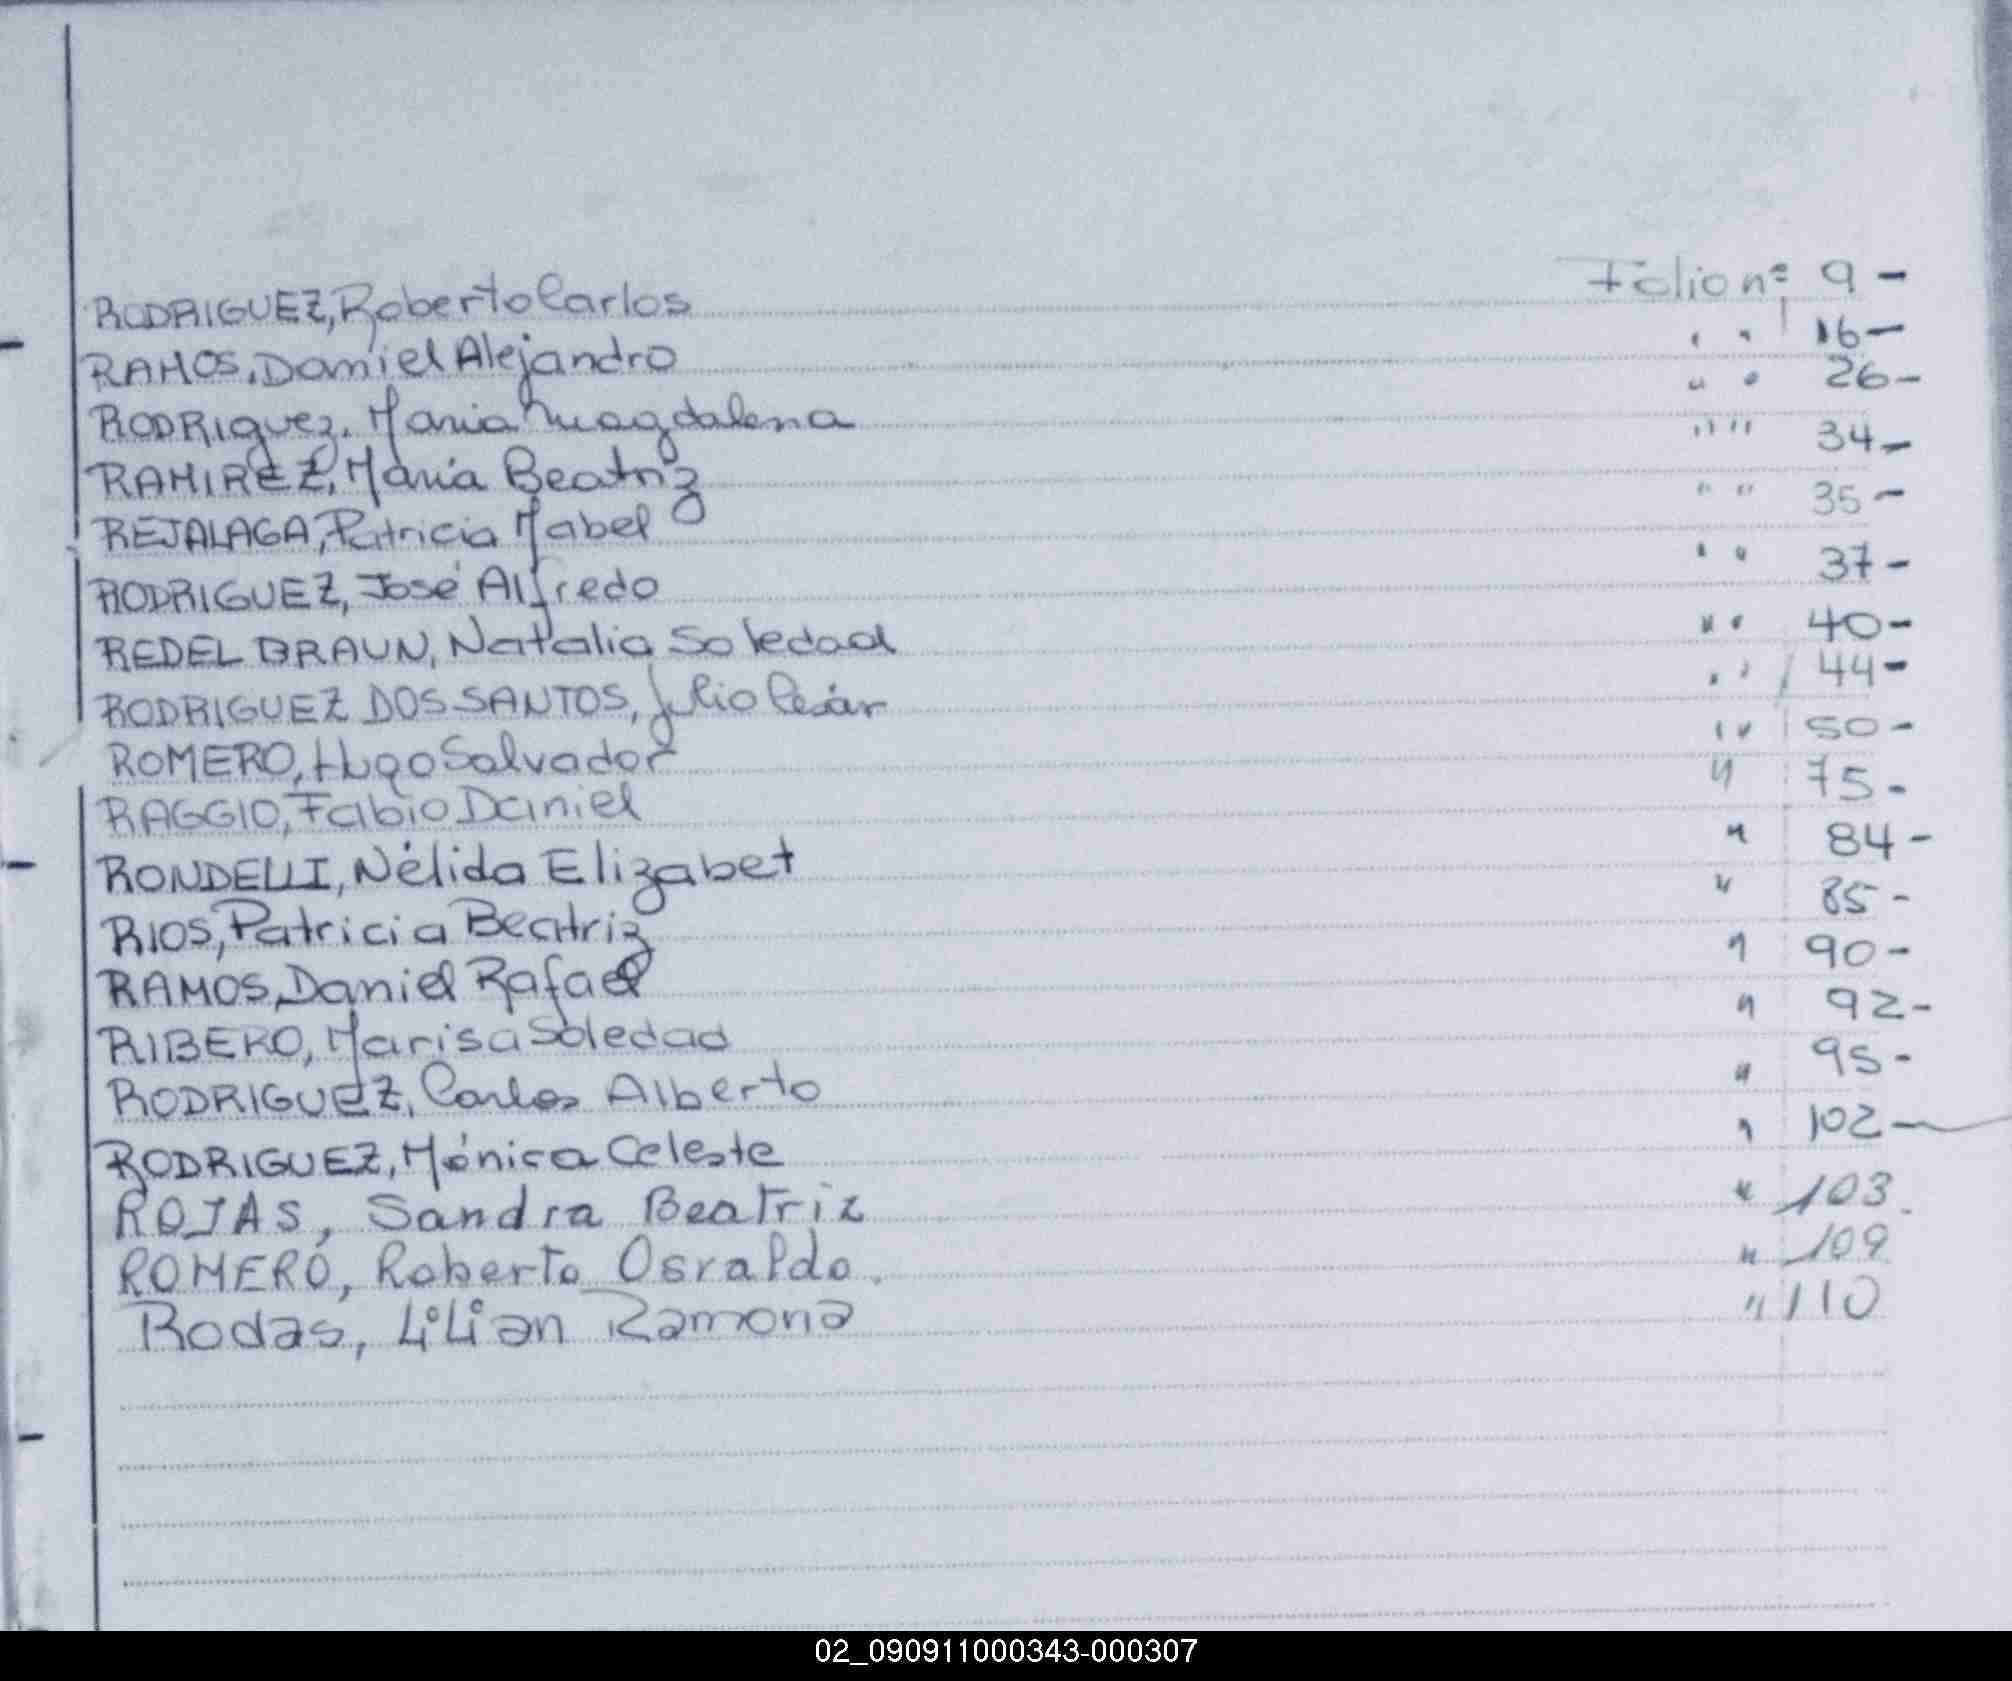 RODRIGUEZ, Roberto Carlos Folio nº 9 -
RAMOS, Daniel Alejandro " " 16 -
RODRIguez, Maria Magdalena " " 26 -
RAMIREZ, Maria Beatriz " " 34 -
REJALAGA, Patricia Mabel " " 35 -
RODRIGUEZ, José Alfredo " " 37 -
REDEL BRAUN, Natalia Soledad " " 40 -
RODRIGUEZ DOS SANTOS, Julio Cesár " " 44 -
ROMERO, Hugo Salvador " " 50 -
RAGGIO, Fabio Daniel " 75 -
RONDELLI, Nélida Elizabet " 84 -
RIOS, Patricia Beatriz " 85 -
RAMOS, Daniel Rafael " 90 -
RIBERO, Marisa Soledad " 92 -
RODRIGUEZ, Carlos Alberto " 95 -
RODRIGUEZ, Mónica Celeste " 102 -
ROJAS, Sandra Beatriz " 103.
ROMERO, Roberto Osvaldo. " 109
Rodas, Lilian Ramona " 110
02_090911000343-000307